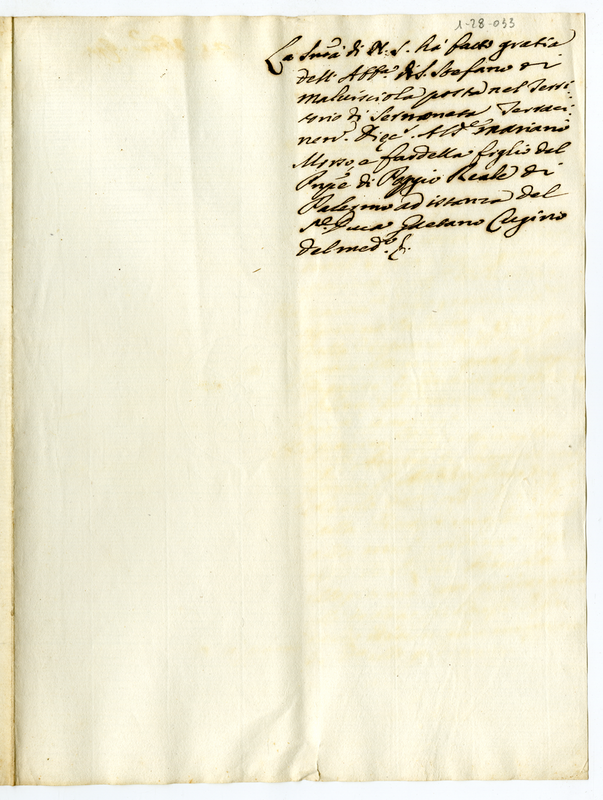 1-28-033
La Sm̃à di N. S. hà fatto gratia
dell' Abb.ᵃ di S. Stefano di
Malvisciola posta nel Terri-
torio di Sermoneta Terraci-
nen. Dioc. Al D. Mariano
Morso, e fardella figlio del
Pnp̃e di Poggio Reale di
Palermo ad istanza del
S.ᵉ Duca Gaetano Cugino
del med.º